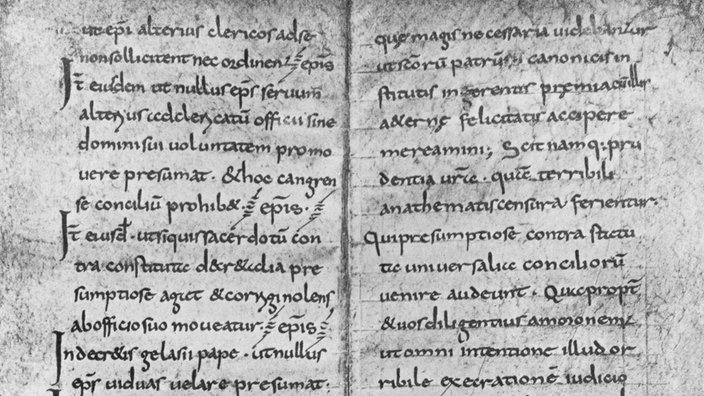 ut ep̄i alterius clericos ad se
non sollicitent nec ordinent ep̄is
It̄ eiusdem ut nullus ep̄s seruum
alterius ad clericatū officii sine
domini sui uoluntatem promo
uere presumat · & hoc cangren
se conciliū prohib& · ep̄is ·
It̄ eiusd̄ · ut siquis sacerdotū con
tra constituta decr&alia pre
sumptiose agit & corrigi nolens
ab officio suo moueatur · ep̄is
In decr&is gelasii pape · ut nullus
ep̄s uiduas uelare presumat ·
quę magis necessaria uidebantur
ut scōrū patrū canonicis in
stitutis inherentes pręmia
&ernę felicitatis accipere
mereamini; Scit namq: pru
dentia urā · quā terribili
anathematis censura ferientur ·
Qui presumptiose contra statu
ta uniuersalia conciliorū
uenire audeunt · Quapropt̄
& uos diligentius ammonem
ut omni intentione illud or
ribile execrationē iudicio